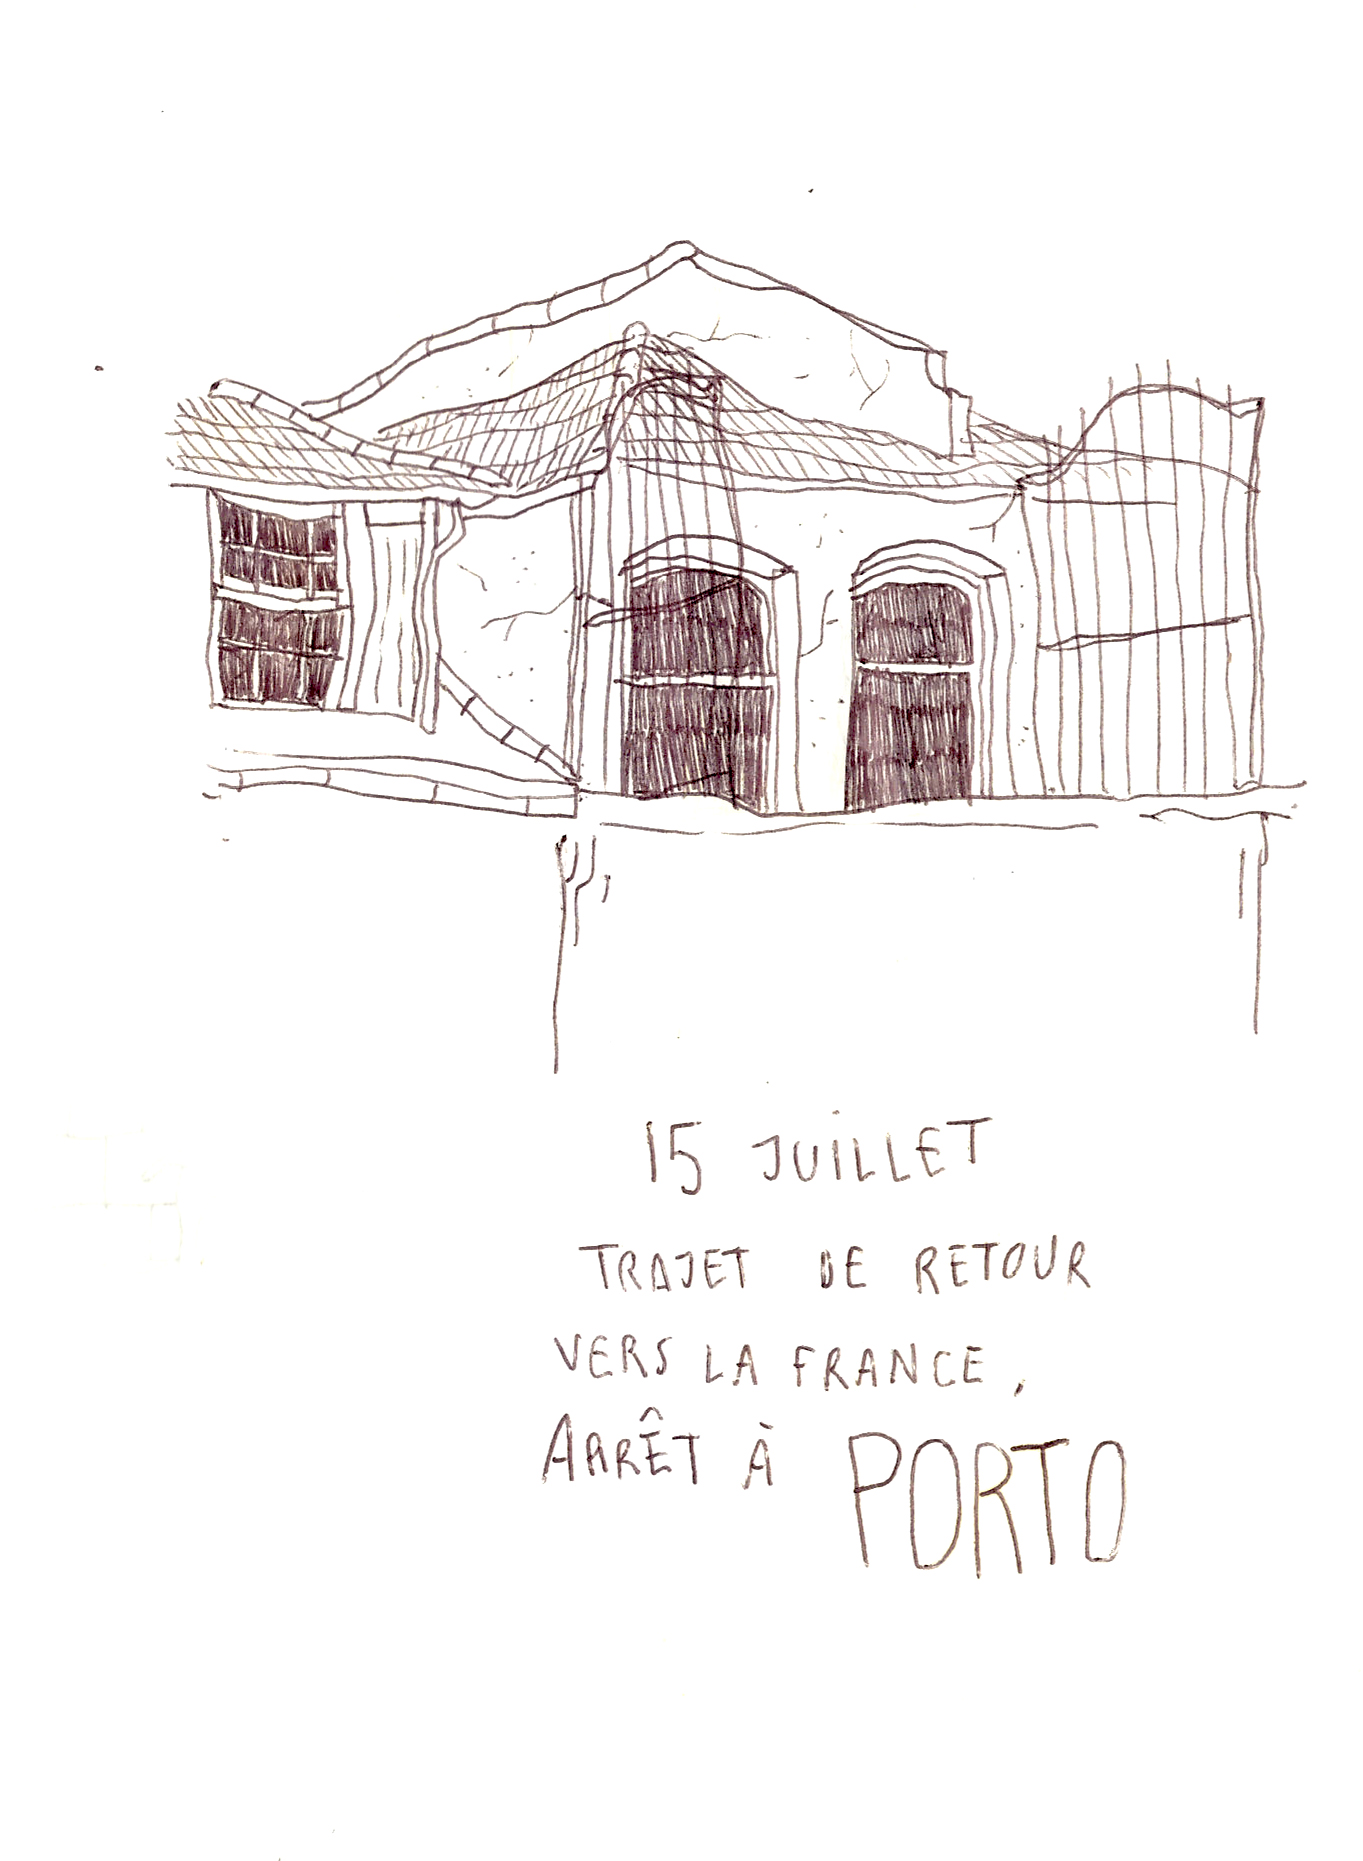 15 JUILLET
TRAJET DE RETOUR
VERS LA FRANCE,
ARRÊT À PORTO